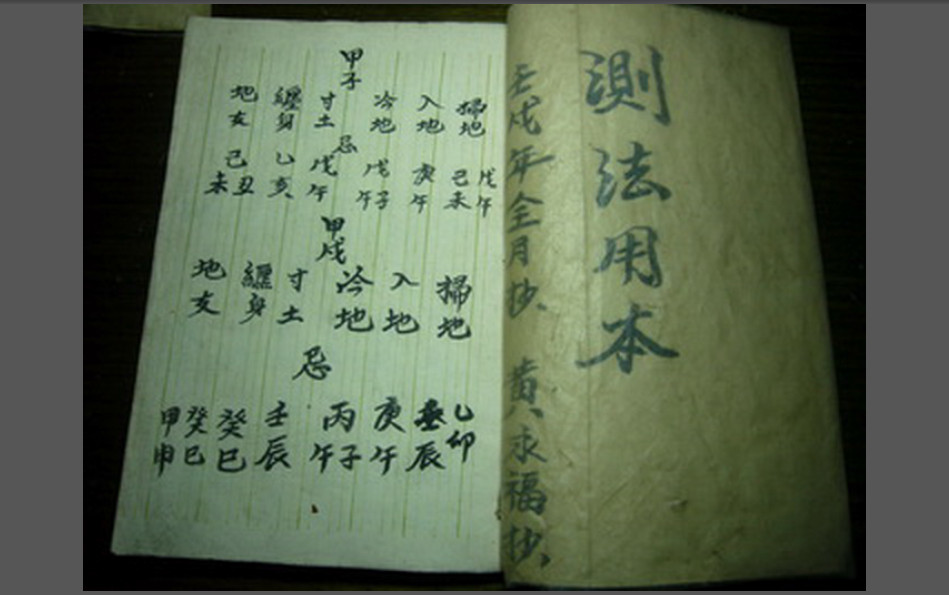 測法用本
壬戌年全月抄 黄永福抄
甲子
掃地 入地 冷地 寸土 纏身 地亥
忌
戊午 己未 庚午 戊子 午 戊午 乙亥 己丑 未
甲戌
掃地 入地 冷地 寸土 纏身 地支
忌
乙卯 壬辰 庚午 丙子 午 壬辰 癸巳 癸巳 甲申